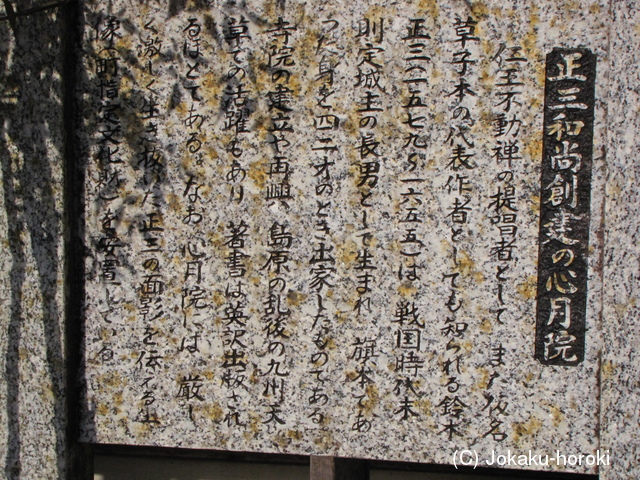 正三和尚創建の心月院
仁王不動禅の提唱者として また仮名
草子本の代表作者としても知られる鈴木
正三(一五七九〜一六五五)は 戦国時代末
則定城主の長男として生まれ 旗本であ
った身を四二才のとき出家したものである
寺院の建立や再興 島原の乱後の九州天
草での活躍もあり 著書は英訳出版され
るほどである。なお 心月院には 厳し
く激しく生き抜いた正三の面影を伝える坐
像(町指定文化財)を安置している
(C) Jokaku-horoki